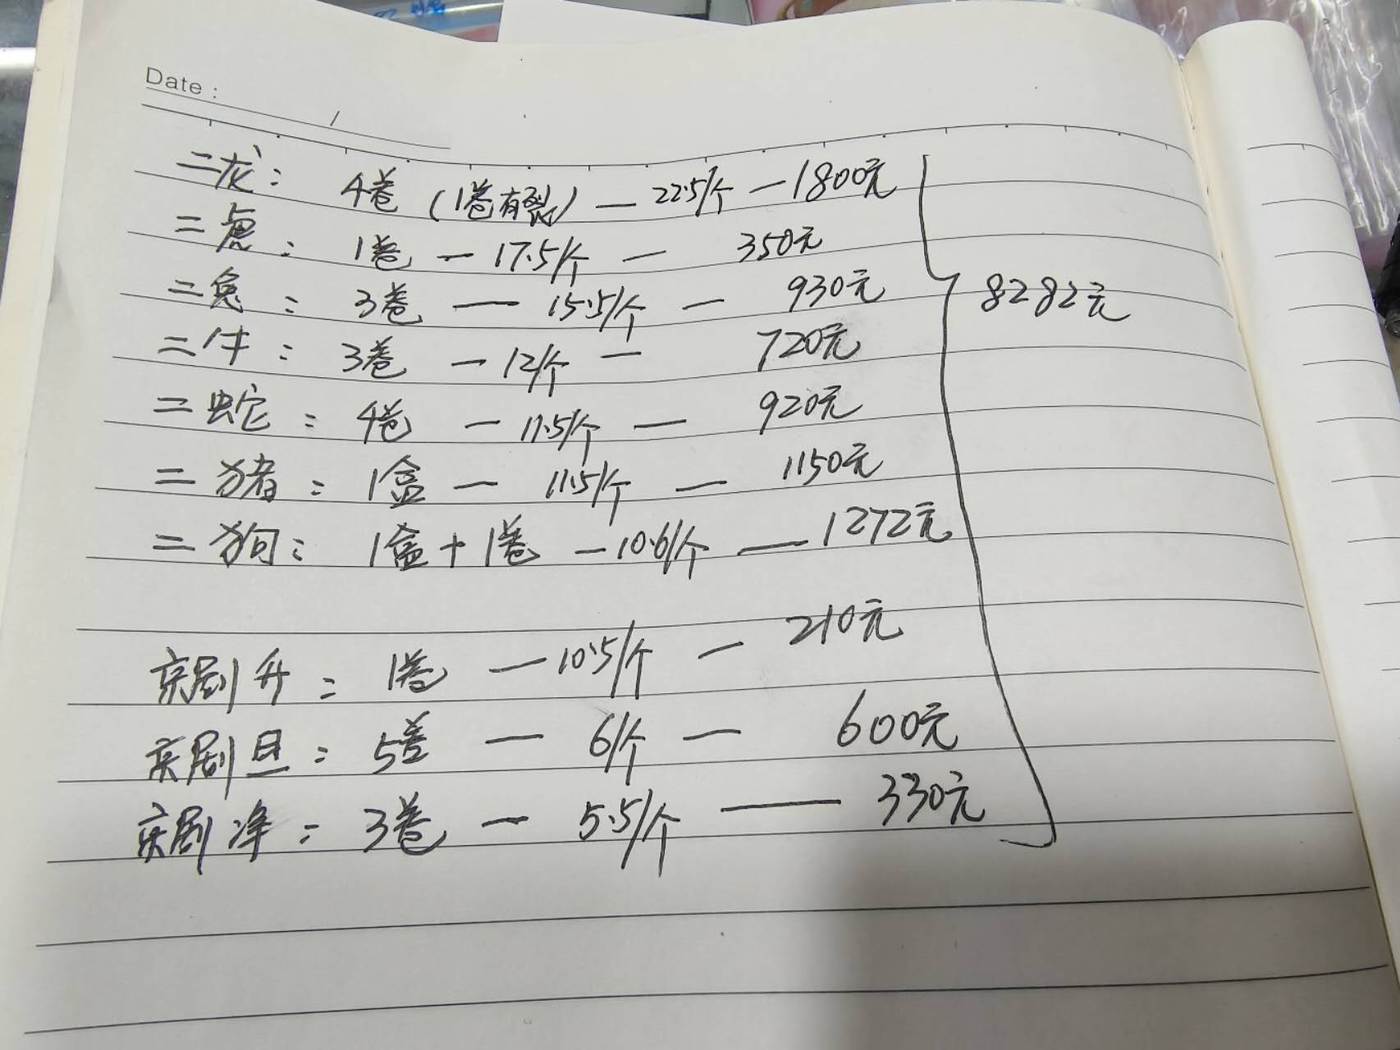 Date :
二龙: 4卷 (1卷有裂) — 22.5/个 — 1800元
二虎: 1卷 — 17.5/个 — 350元
二兔: 3卷 — 15.5/个 — 930元
二牛: 3卷 — 12/个 — 720元
二蛇: 4卷 — 11.5/个 — 920元
二猪: 1盒 — 11.5/个 — 1150元
二狗: 1盒+1卷 — 10.6/个 — 1272元
8282元
京剧升: 1卷 — 10.5/个 — 210元
京剧旦: 5卷 — 6/个 — 600元
京剧净: 3卷 — 5.5/个 — 330元